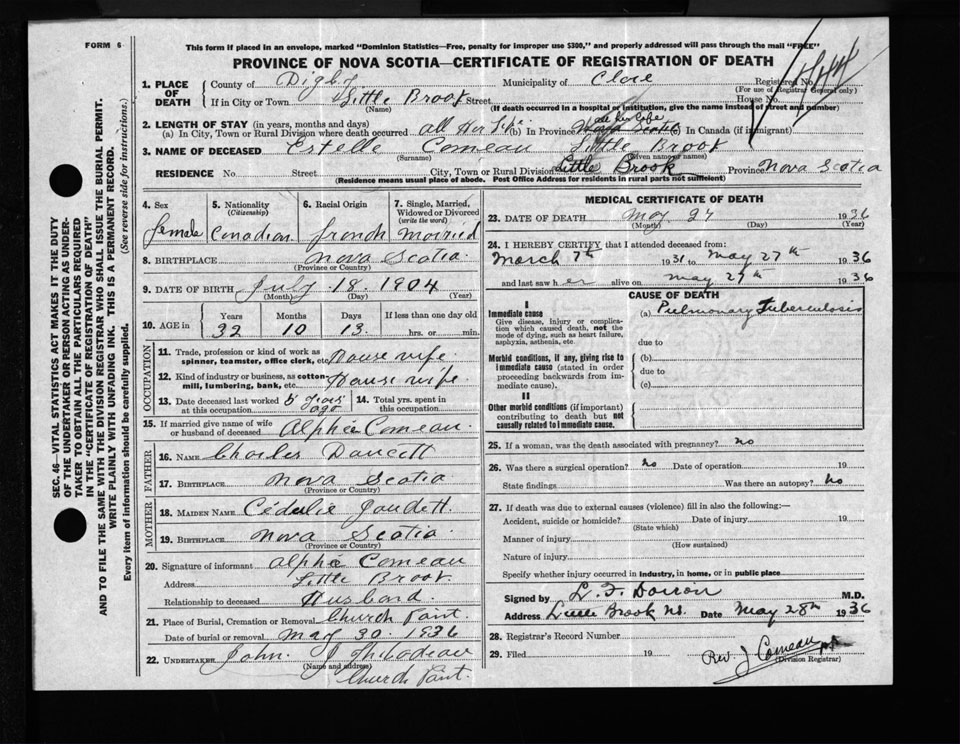 FORM 6
This form if placed in an envelope, marked "Dominion Statistics—Free, penalty for improper use $300," and properly addressed will pass through the mail "FREE"
PROVINCE OF NOVA SCOTIA—CERTIFICATE OF REGISTRATION OF DEATH
1. PLACE OF DEATH County of Digby Municipality of Clare Registered No.
(For use of Registrar General only)
If in City or Town Little Brook Street House No.
(Name) (If death occurred in a hospital or institution, give the name instead of street and number)
2. LENGTH OF STAY (in years, months and days)
(a) In City, Town or Rural Division where death occurred all Her Life (b) In Province all her life Nova Scotia (c) In Canada (if immigrant)
3. NAME OF DECEASED Estelle Comeau Little Brook
(Surname) (Given name or names)
RESIDENCE No. Street City, Town or Rural Division Little Brook Province Nova Scotia
(Residence means usual place of abode. Post Office Address for residents in rural parts not sufficient)
4. Sex 5. Nationality (Citizenship) 6. Racial Origin 7. Single, Married, Widowed or Divorced (write the word)
female Canadian french Married
8. BIRTHPLACE Nova Scotia
(Province or Country)
9. DATE OF BIRTH July 18 1904
(Month) (Day) (Year)
10. AGE in Years Months Days If less than one day old
32 10 13 hrs. or min.
OCCUPATION
11. Trade, profession or kind of work as spinner, teamster, office clerk, etc. House wife
12. Kind of industry or business, as cotton-mill, lumbering, bank, etc. House wife
13. Date deceased last worked at this occupation 5 years ago 14. Total yrs. spent in this occupation
15. If married give name of wife or husband of deceased Alphée Comeau
FATHER
16. NAME Charles Doucett
17. BIRTHPLACE Nova Scotia
(Province or Country)
MOTHER
18. MAIDEN NAME Cédulie Gaudett
19. BIRTHPLACE Nova Scotia
(Province or Country)
20. Signature of informant Alphée Comeau
Address Little Brook
Relationship to deceased Husband
21. Place of Burial, Cremation or Removal Church Point
Date of burial or removal May 30. 1936
22. UNDERTAKER John Thibodeau
(Name and address)
Church Point.
MEDICAL CERTIFICATE OF DEATH
23. DATE OF DEATH May 27 1936
(Month) (Day) (Year)
24. I HEREBY CERTIFY that I attended deceased from:
March 7th 1931 to May 27th 1936
and last saw her alive on May 27th 1936
CAUSE OF DEATH
I
Immediate cause
Give disease, injury or complication which caused death, not the mode of dying, such as heart failure, asphyxia, asthenia, etc.
(a) Pulmonary Tuberculosis
due to
Morbid conditions, if any, giving rise to immediate cause (stated in order proceeding backwards from immediate cause).
(b)
due to
(c)
II
Other morbid conditions (if important) contributing to death but not causally related to immediate cause.
25. If a woman, was the death associated with pregnancy? no
26. Was there a surgical operation? No Date of operation 19
State findings Was there an autopsy? No
27. If death was due to external causes (violence) fill in also the following:—
Accident, suicide or homicide? Date of injury 19
(State which)
Manner of injury
(How sustained)
Nature of injury
Specify whether injury occurred in industry, in home, or in public place
Signed by M.D.
Address Little Brook NS. Date May 28th 1936
28. Registrar's Record Number
29. Filed 19 Rev. J Comeau
(Division Registrar)
SEC. 46—VITAL STATISTICS ACT MAKES IT THE DUTY
OF THE UNDERTAKER OR PERSON ACTING AS UNDER-
TAKER TO OBTAIN ALL THE PARTICULARS REQUIRED
IN THE "CERTIFICATE OF REGISTRATION OF DEATH"
AND TO FILE THE SAME WITH THE DIVISION REGISTRAR WHO SHALL ISSUE THE BURIAL PERMIT.
WRITE PLAINLY WITH UNFADING INK. THIS IS A PERMANENT RECORD.
Every item of information should be carefully supplied. (See reverse side for instructions.)